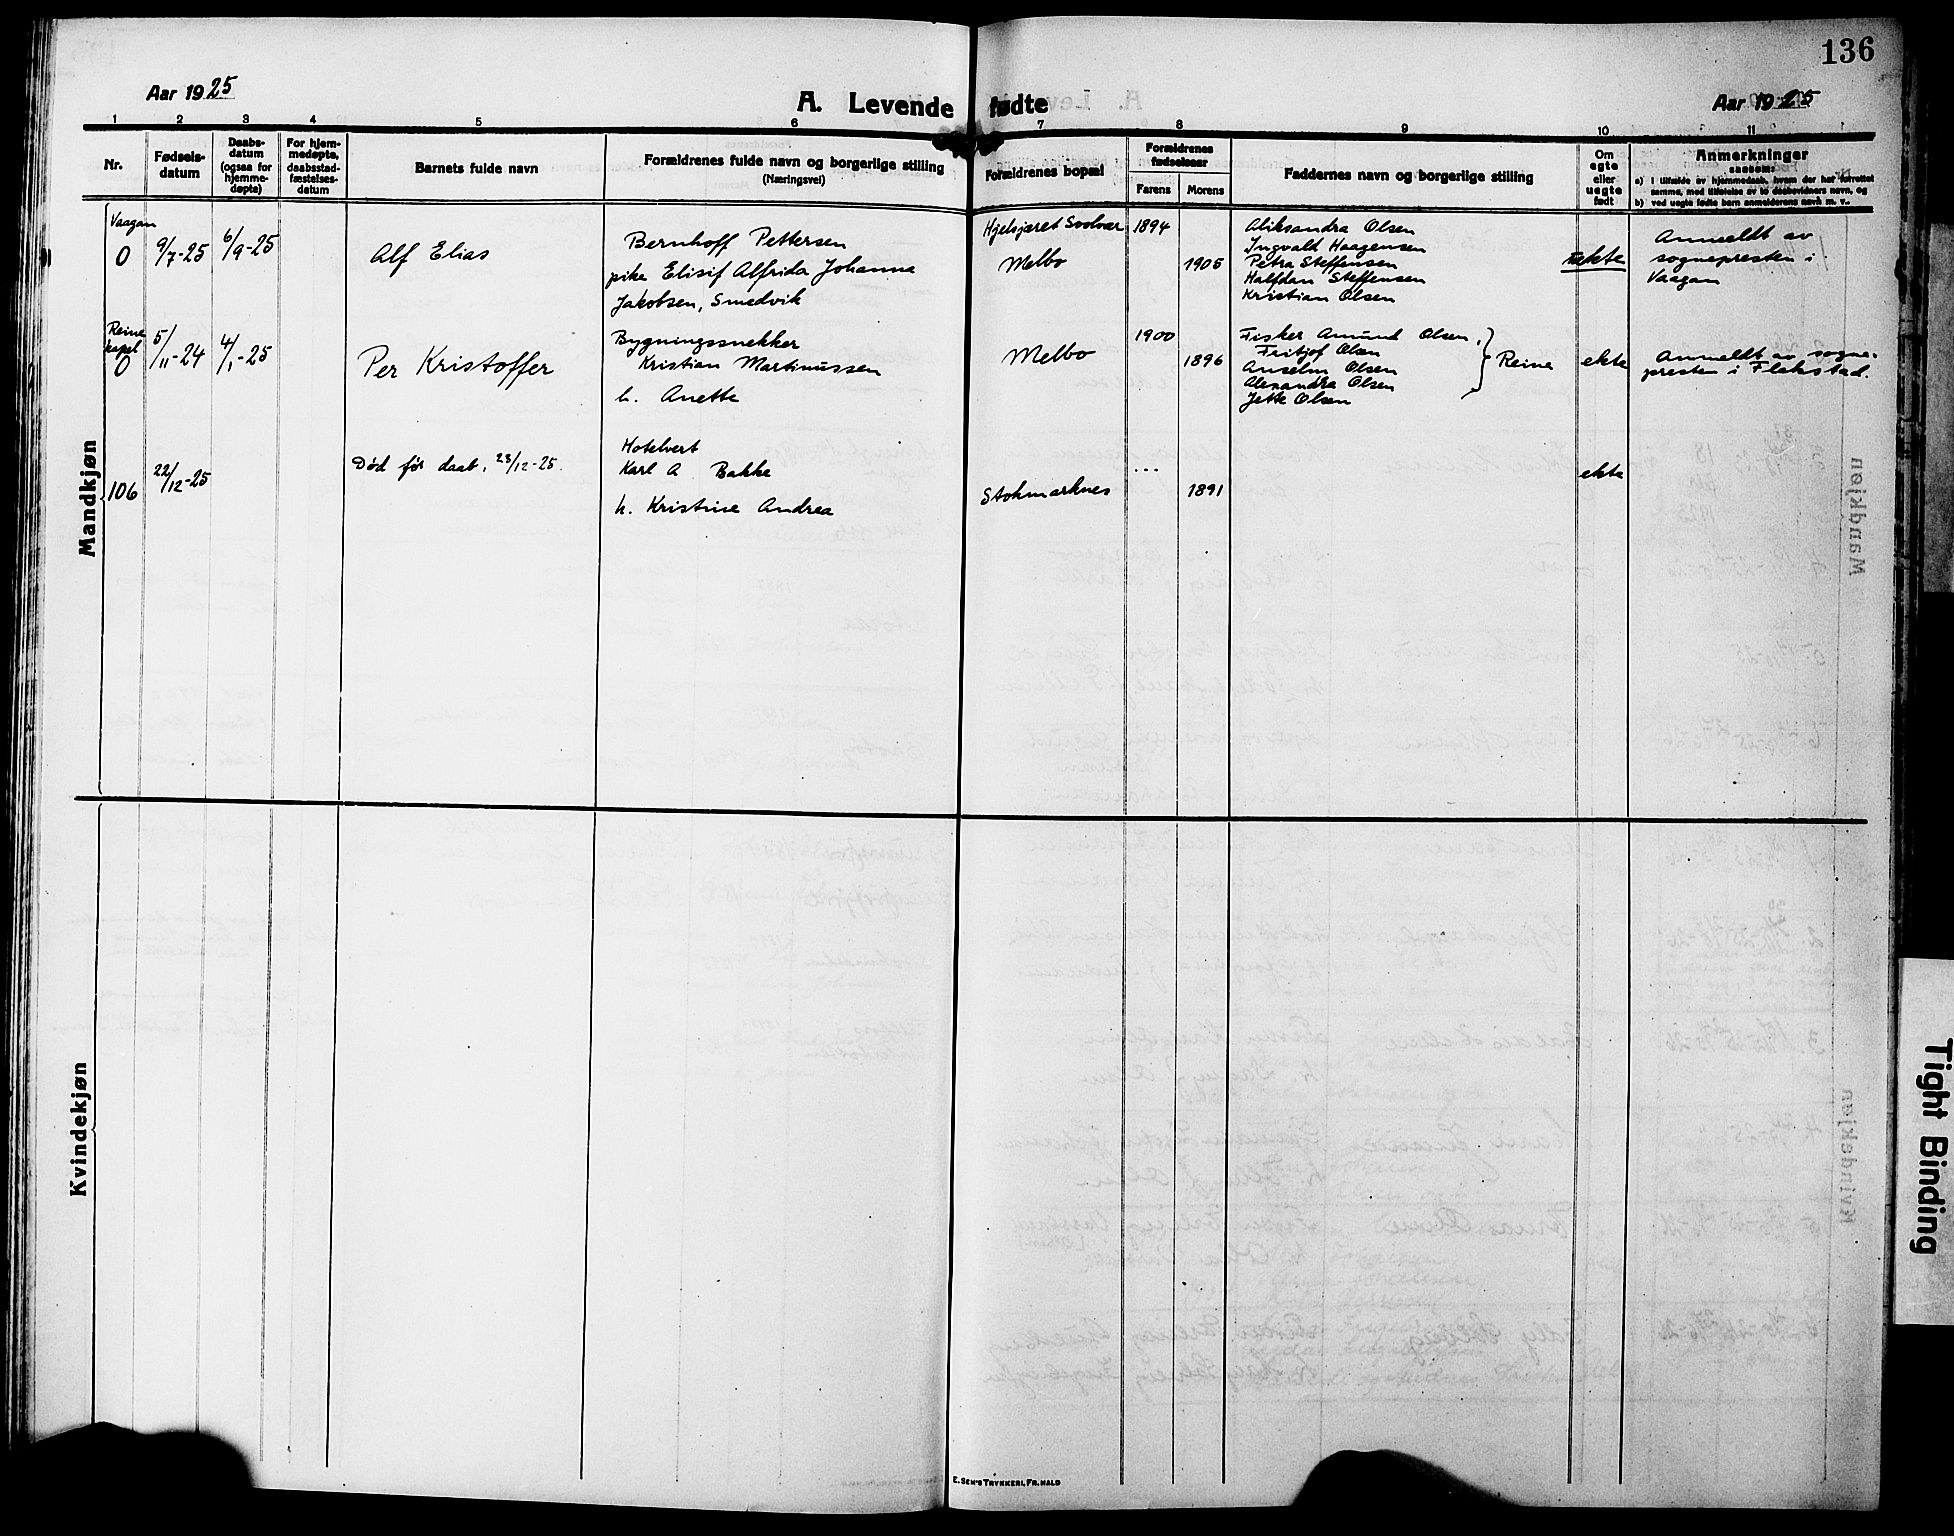 136
Aar 1925
A. Levende fødte
Aar 1925
1 2 3 4 5 6 7 8 9 10 11
Nr.
Fødsels-
datum
Daabs-
datum
(ogsaa for
hjemme-
døpte)
For hjem-
medøpte,
daabsstad-
fæstelses-
datum
Barnets fulde navn
Forældrenes fulde navn og borgerlige stilling
(Næringsvei)
Forældrenes bopæl
Forældrenes
fødselsaar
Farens Morens
Faddernes navn og borgerlige stilling
Om
egte
eller
uegte
født
Anmerkninger
saasom:
a) i tilfælde av hjemmedaab, hvem der har forrettet
samme, med tilføielse av to daabsvidners navn, og
b) ved uegte fødte barn anmelderens navn m. v..
Mandkjøn
Vaagan
0 9/7-25 6/9-25
Alf Elias
Bernhoff Pettersen
pike Elisif Alfrida Johanna
Jakobsen, Smedvik
Hjelsjæret Svolvær
Melbo
1894
1905
Aliksandra Olsen
Ingvald Haagensen
Petra Steffensen
Halfdan Steffensen
Kristian Olsen
uekte
Anmeldt av
sognepresten i
Vaagan
Reine
kapel
0 5/11-24 4/1-25
Per Kristoffer
Bygningssnekker
Kristian Martinussen
h. Anette
Melbo
1900
1896
Fisker Amund Olsen,
Fritjof Olsen
Anselm Olsen
Alexandra Olsen
Jette Olsen
Reine
ekte
Anmeldt av sogne-
presten i Flakstad.
106 22/12-25
Død før daab, 23/12-25.
Hotelvert
Karl A Bakke
h. Kristine Andrea
Stokmarknes
...
1891
ekte
Kvindekjøn
E. Sem's Trykkeri, Fr.hald
Tight Binding